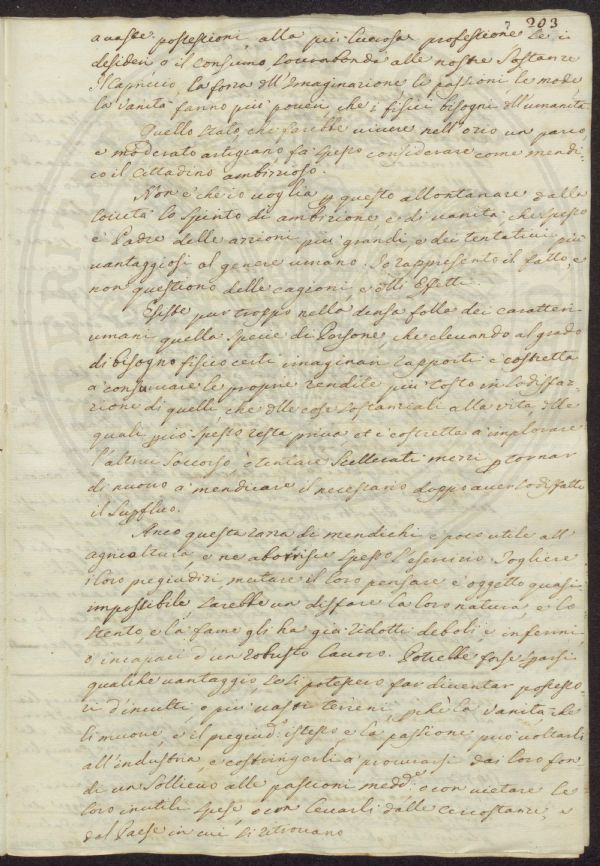 7 203
a vaste possessioni, alla più lucrosa professione le i
desideri o il consumo soverabonda alle nostre sostanze
Il Capriccio, la forza dell'Imaginazione, le passioni le mode
la vanità fanno più poveri che i fisici bisogni dell'umanità
Quello stato, che farebbe vivere nell'ozio un parco,
e moderato artigiano, fa spesso considerare come mendi-
co il Cittadino ambizioso.
Non è che io voglia p questo allontanare dalla
società lo spirito di ambizione e di vanità che spesso
è Padre delle azzioni più grandi e dei tentativi più
vantaggiosi al genere umano. Io rappresento il fatto, e
non questiono delle cagioni, e degli Effetti.
Esiste pur troppo nella densa folla dei caratteri
umani quella specie di Persone, che elevando al grado
di bisogno fisico certi imaginari rapporti è costretta
a consumare le proprie rendite più tosto in sodisfaz-
zione di quelli che delle cose sostanziali alla vita delle
quali più spesso resta priva et è costretta a implorare
l'altrui soccorso, o tentare scellerati mezzi p tornar
di nuovo a mendicare il necessario doppo aver sodisfatto
il supfluo.
Anco questa razza di mendichi è poco utile all'
agricoltura, e ne aborrisce spesso l'esercizio. Togliere
i loro pregiudizi, mutare il loro pensare è oggetto quasi
impossibile, sarebbe un disfare la loro natura, e lo
stento, e la fame gli ha già ridotti deboli, e infermi,
o incapaci d'un robusto lavoro. Potrebbe forse sperarsi
qualche vantaggio, se si potessero far diventar possesso-
ri d'inculti o più vasti terreni, pchè la vanità che
li muove, e il pregiud.o istesso e la passione può voltarli
all'industria, e costringerli a procurarsi dai loro fon-
di un sollievo alle passioni medd.e o con vietare le
loro inutili spese, o con levarli dalle circostanze, e
dal Paese in cui si ritrovano